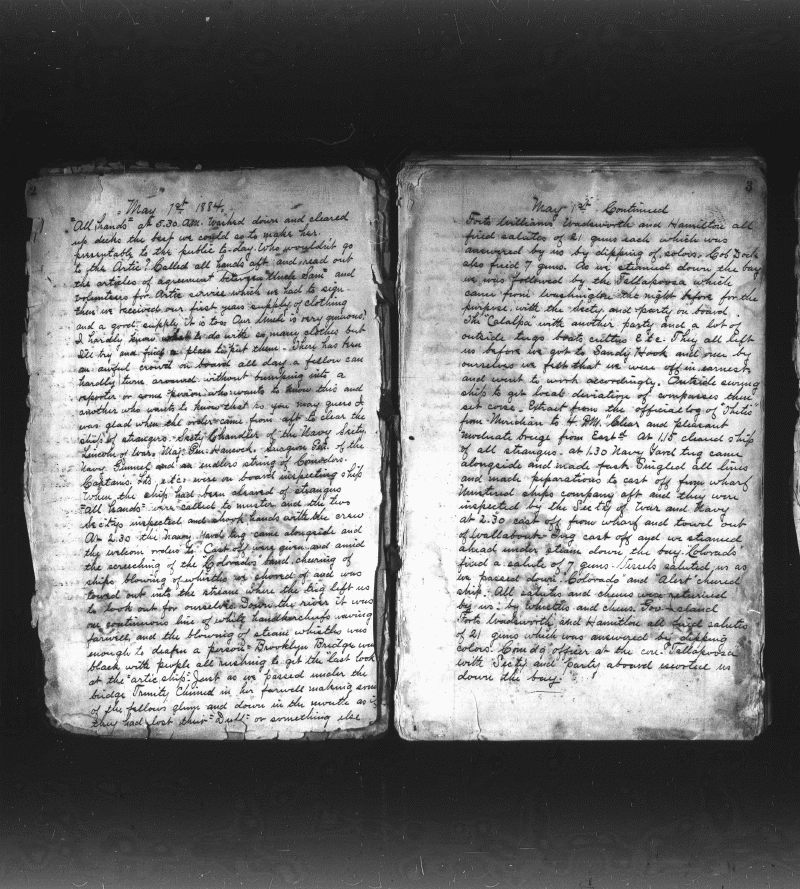 2
May 1st 1884.
"All hands" at 5.30. A.M. Washed down and cleared
up decks the best we could so to make her
presentable to the public to-day. Who wouldn't go
to the Artic? Called all hands aft and read out
the articles of agreement between "Uncle Sam" and
volunteers for Artic service which we had to sign
then we received our first years supply of clothing
and a good supply it is too. Our lunch is very
I hardly know what to do with so many clothes but
I'll try and find a place to put them. There has been
an awful crowd on board all day a fellow can
hardly turn around without bumping into a
reporter or some person who wants to know this and
another who wants to know that so you may guess I
was glad when the order came from aft to clear the
ship of strangers. Secty Chandler of the Navy Secty.
Lincoln of War, Maj. Gen. Hancock, Surgeon Gen. of the
Navy and an endless string of Comodors.
Captains. etc. were on board inspecting ship
When the ship had been cleared of strangers
"All hands" were called to muster and the two
Sectys inspected and shook hands with the crew
At 2.30 the Navy Yard tug came alongside and
the welcom order to "Cast off" were given and amid
the screeching of the Colorado's band, cheering of
ships blowing of whistles we shoved of and was
towed out into the stream where the tug left us
to look out for ourselves. Down the river it was
one continuous line of white handkerchiefs waving
farwell and the blowing of steam whistles was
enough to deafen a person. Brooklyn Bridge was
black with people all rushing to get the last look
at the "artic ship" Just as we passed under the
bridge Trinity Chimed in her farwell making some
of the fellows glum and down in the mouth as if
they had lost their "Duff" or something else
3
May 1st. Continued
Forts Williams Wadsworth and Hamilton all
fired salutes of 21 guns each which was
answered by us by dipping of colors. Cob Dock
also fired 7 guns. As we steamed down the bay
we was followed by the Tallapoosa which
came from Washington the night before for the
purpose, with the Secty and party on board.
The "Catalpa with another party and a lot of
outside tugs boats, cutters Etc. They all left
us before we got to Sandy Hook and once by
ourselves we felt that we were off in earnest
and went to work accordingly. Outside swung
ship to get local deviation of compasses then
set corse. Extract from the "official log of "Thetis"
from Meridian to 4 P.M. Clear and pleasant
moderate breeze from Eastd. At 1.15 cleared ship
of all strangers. at 1.30 Navy Yard tug came
alongside and made fast. Singled all lines
and made preparations to cast off from wharf
Mustered ships company aft and they were
inspected by the Sectys of War and Navy
at 2.30 cast off from wharf and towed out
of wallabout. Tug cast off and we steamed
ahead under steam down the bay. Colorado
fired a salute of 7 guns. Vessels saluted us as
we passed down. "Colorado" and "Alert" cheered
ship. All salutes and cheers were returned
by us, by whistles and cheers. Gov. Island
Forts Wadsworth and Hamilton all fired salutes
of 21 guns which was answered by dipping
colors. Comdg officer at the con. "Tallapoosa
with Secty and party aboard escorted us
down the bay.